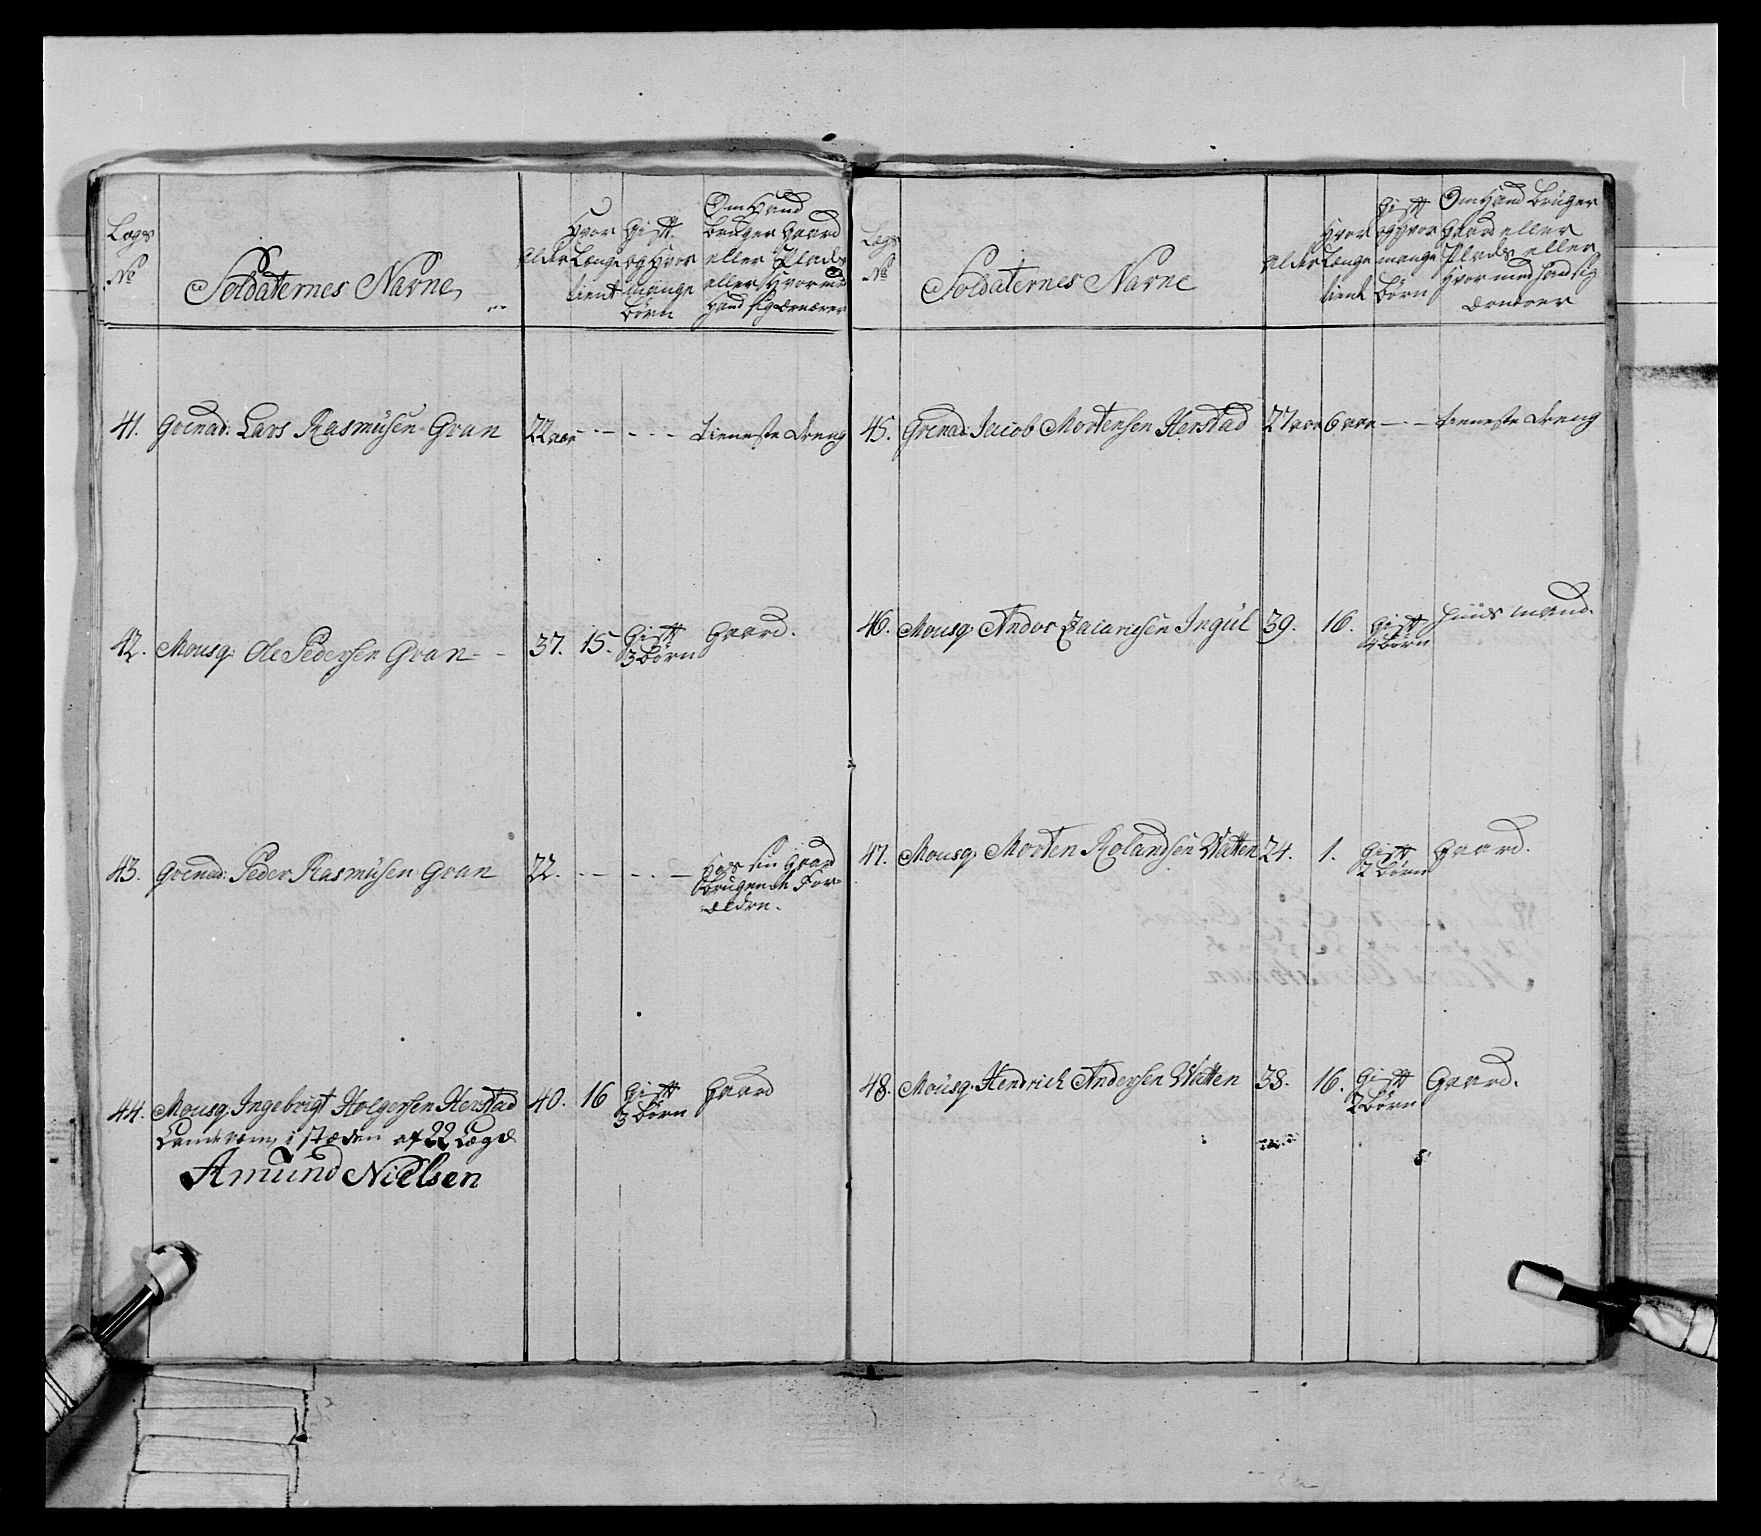 Lægs
No
Soldaternes Navne,
Alder
Hvor
Længe
tient
Gift
og Hvor
mange
børn
Om Hand
bruger Gaard
eller Plads
eller Hvormed
Hand sig Ærnærer
41. Grenad: Lars Rasmusen Gran 22 aar - - - - - tieneste dreng
42. Mousq: Ole Pedersen Gran - - 37. 15. Gift Gaard.
3 børn
43. Grenad: Peder Rasmusen Gran 22. - - - - - Hos sin Gaard
brugende For-
ældre.
44. Mousq: Ingebrigt Holgersen Herstad 40. 16 Gift Gaard
3 børn
Landværn, i stæden af 22 Lægd
Amund Nielsen
Lægs
No
Soldaternes Navne
Alder
Hvor
Længe
tient
Gift
og Hvor
mange
børn
Om Hand bruger
Gaard eller
Plads eller
Hvormed Hand sig
Ærnærer
45. Grenad: Jacob Mortensen Herstad 27 aar 6 aar - - - tieneste dreng
46. Mousq: Andor Zacariesen Ingul 39. 16. Gift Huusmand.
4 børn
47. Mousq: Morten Rolandsen Watten 24. 1. Gift Gaard.
2 børn
48. Mousq: Hendrich Andersen Watten 38. 16. Gift Gaard.
2 børn